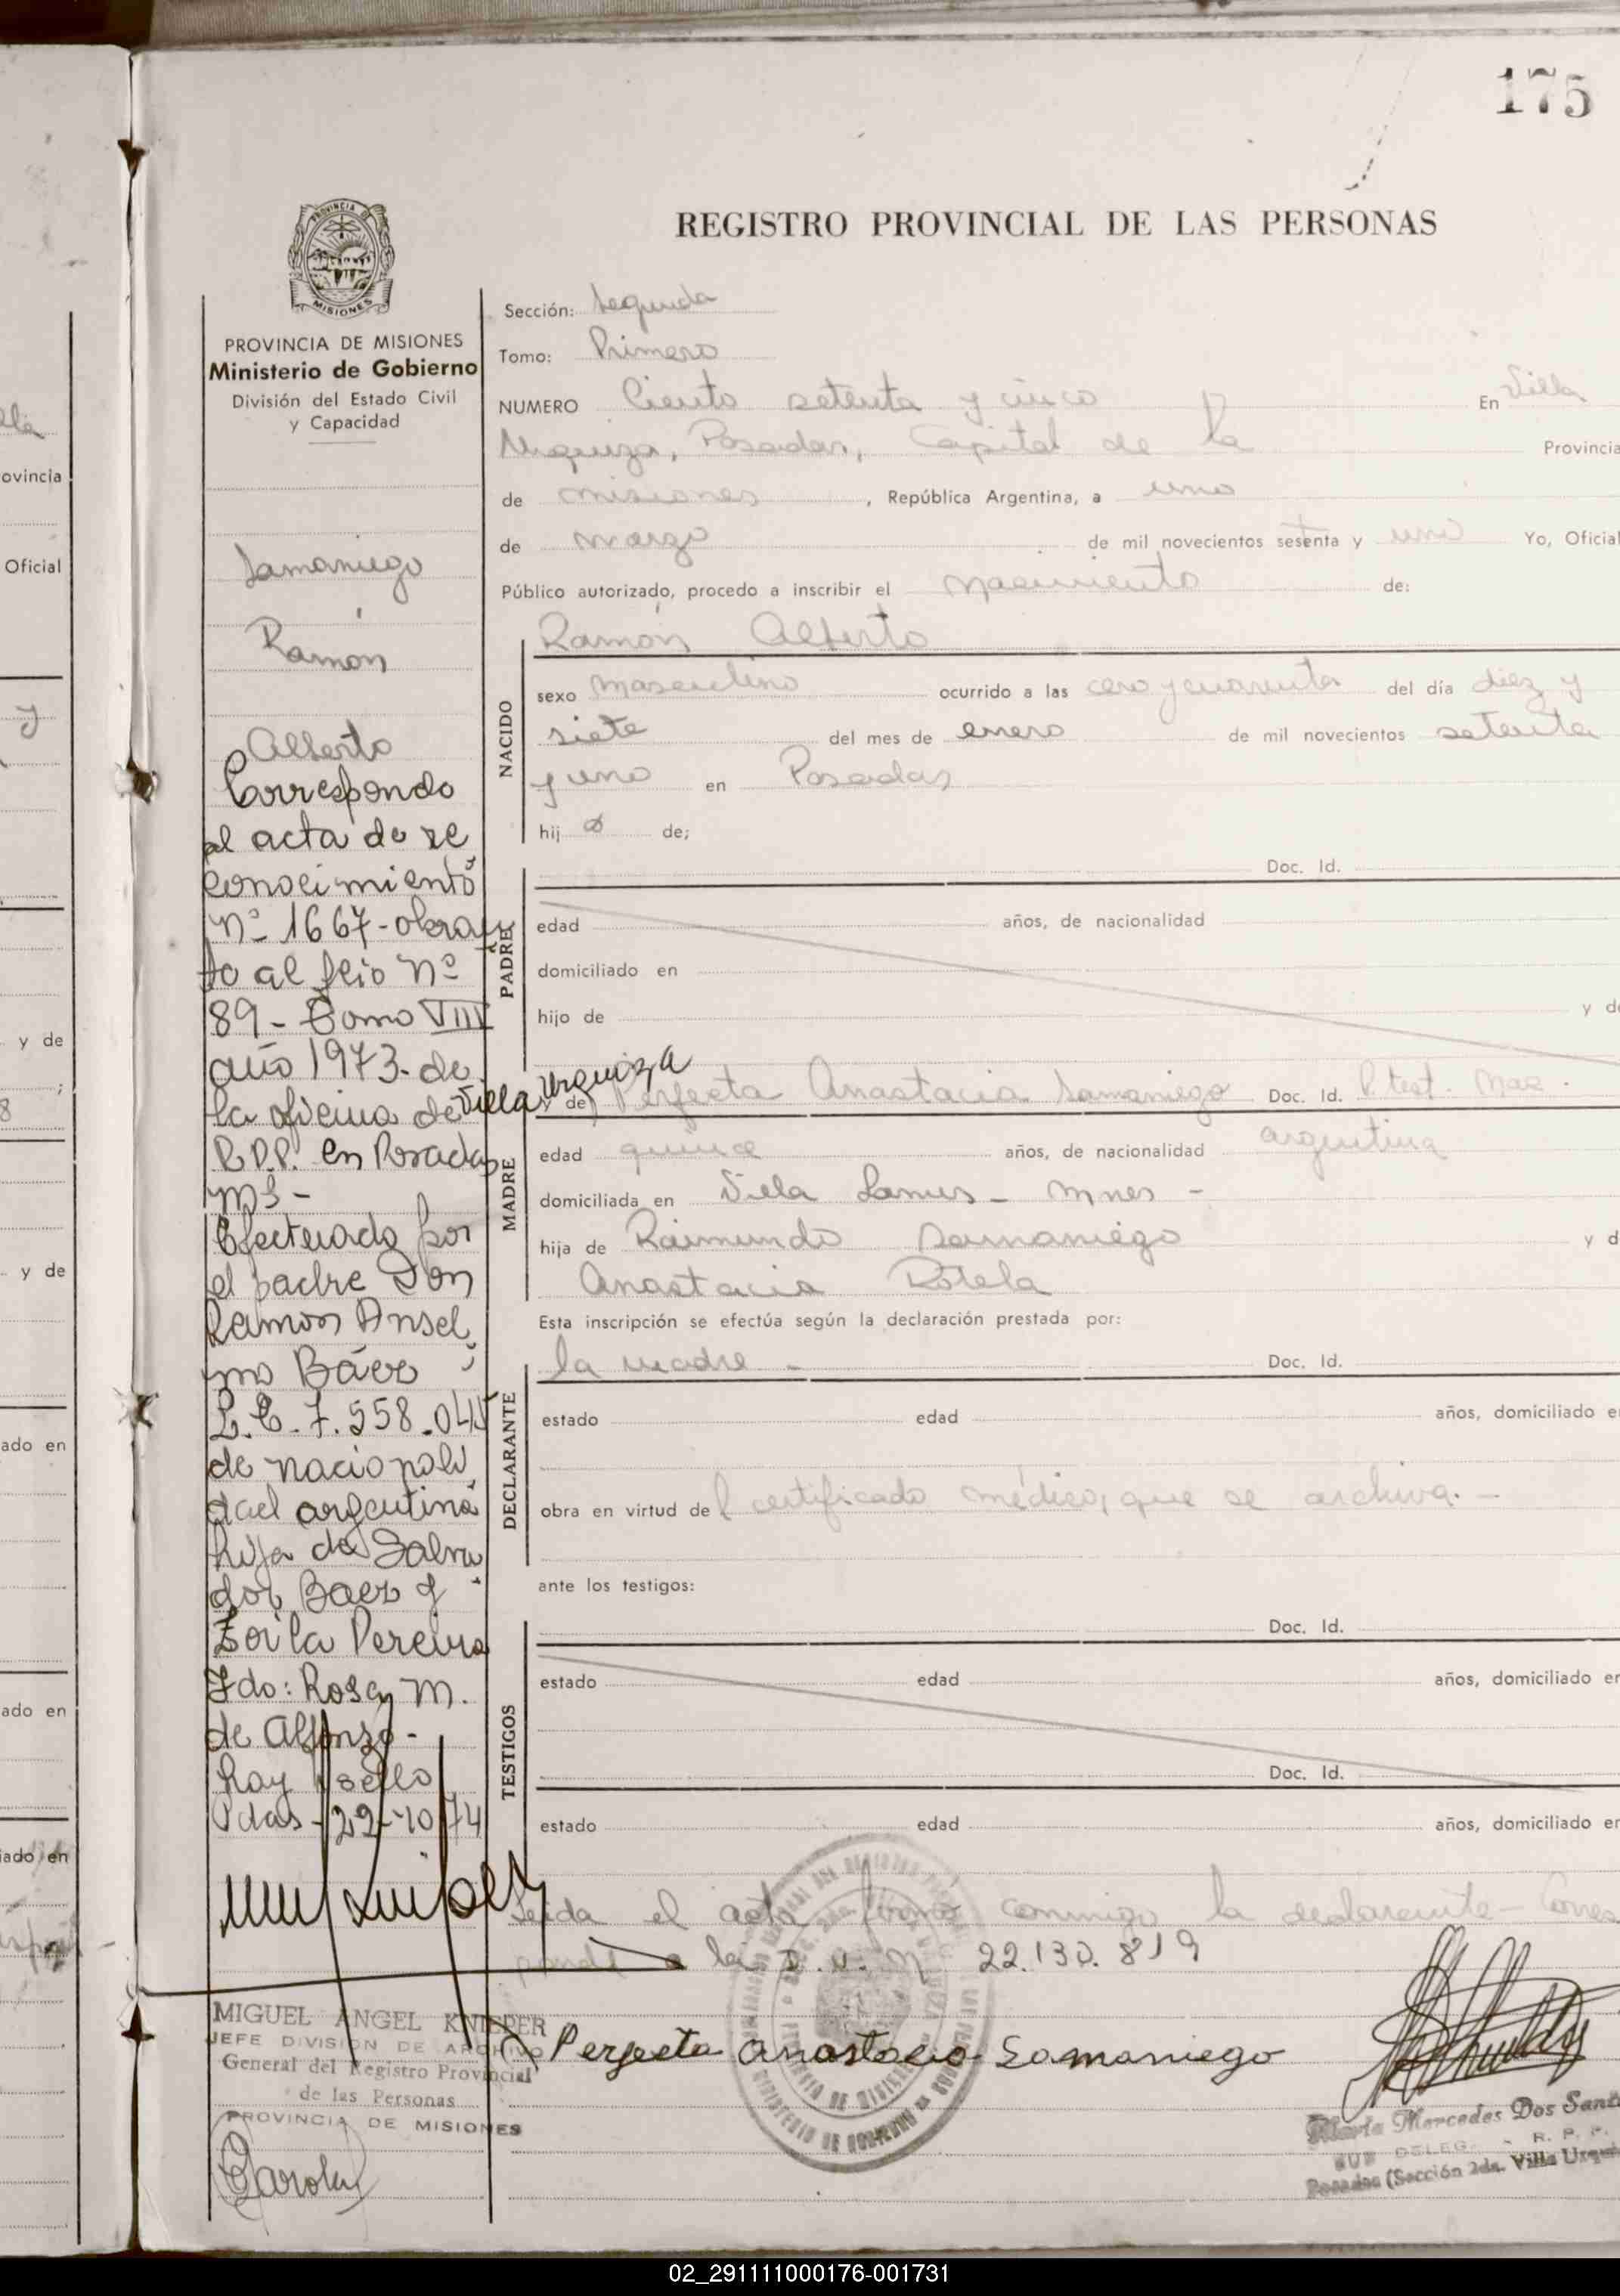 175
REGISTRO PROVINCIAL DE LAS PERSONAS
PROVINCIA DE MISIONES
Ministerio de Gobierno
División del Estado Civil
y Capacidad
Samaniego
Ramón
Alberto
Corresponde
al acta de re
conocimiento
nº 1667 - obran
te al folio nº
89 - Tomo VIII
año 1973 - de
la oficina de Villa Urquiza
R.P.P. en Posadas
Ms -
Efectuado por
el padre Don
Ramon Ansel
mo Báez
L.E. 7.558.045
de nacionali
dad argentina
hijo de Salva
dor Baez y
Zoila Pereira
Fdo: Rosa M.
de Alfonzo -
hay sello
Pdas - 29-10-74
MIGUEL ANGEL KNIEPER
JEFE DIVISIÓN DE ARCHIVO
General del Registro Provincial
de las Personas
PROVINCIA DE MISIONES
Sección: Segunda
Tomo: Primero
NUMERO Ciento setenta y cinco En Villa
Urquiza, Posadas, Capital de la Provincia
de misiones, República Argentina, a uno
de marzo de mil novecientos sesenta y uno Yo, Oficial
Público autorizado, procedo a inscribir el nacimiento de:
Ramón Alberto
NACIDO
sexo masculino ocurrido a las cero y cuarenta del día diez y
siete del mes de enero de mil novecientos setenta
y uno en Posadas
hijo de;
Doc. Id.
PADRE
edad años, de nacionalidad
domiciliado en
hijo de y de
y de; Perfecta Anastacia Samaniego Doc. Id. P. test. Nac.
MADRE
edad quince años, de nacionalidad argentina
domiciliada en Villa Lanus - Mnes -
hija de Raimundo Samaniego y d
Anastacia Rotela
Esta inscripción se efectúa según la declaración prestada por:
la madre - Doc. Id.
DECLARANTE
estado edad años, domiciliado en
obra en virtud del certificado médico, que se archiva. -
ante los testigos:
Doc. Id.
TESTIGOS
estado edad años, domiciliado en
Doc. Id.
estado edad años, domiciliado en
Leída el acta firma conmigo la declarante - Corres
ponde a la D.U. Nº 22.130.819
Perfecta Anastacia Samaniego
María Mercedes Dos Sant
SUB DELEG. R. P. P.
Posadas (Sección 2da. Villa Urqui
ovincia
Oficial
y de
y de
ado en
ado en
iado en
02_291111000176-001731